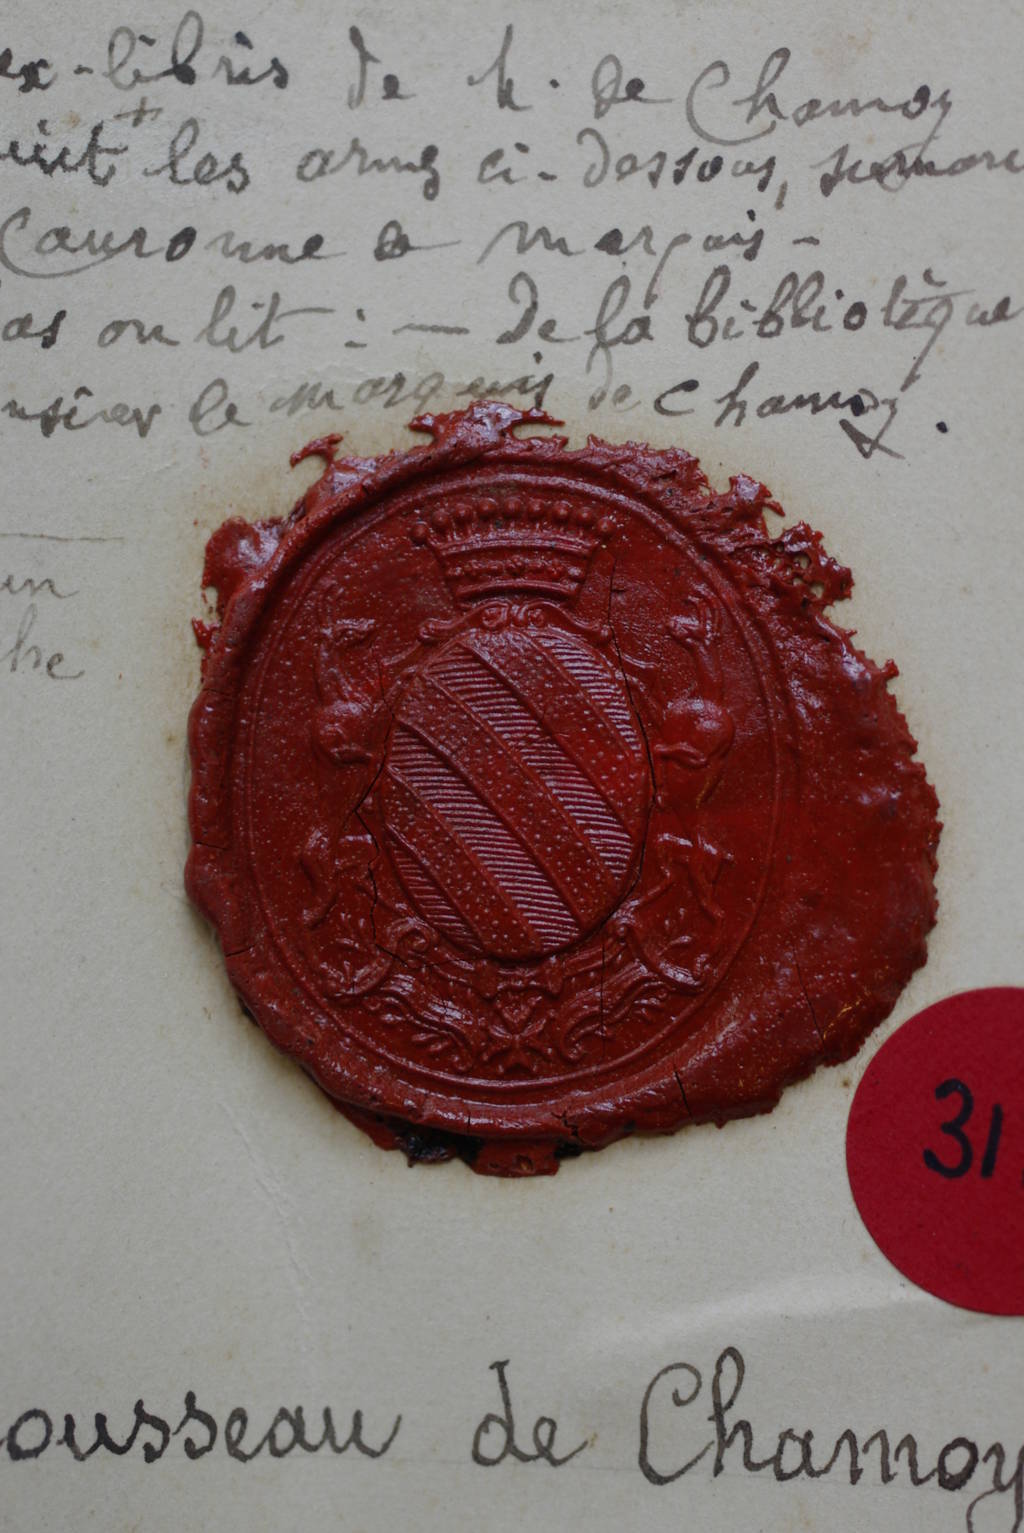 ex-libris de M. de Chamoy
les armes ci-dessous,
Couronne de marquis -
as on lit : — De la bibliotèque
le marquis de Chamoy.
un
che
31
ousseau de Chamoy